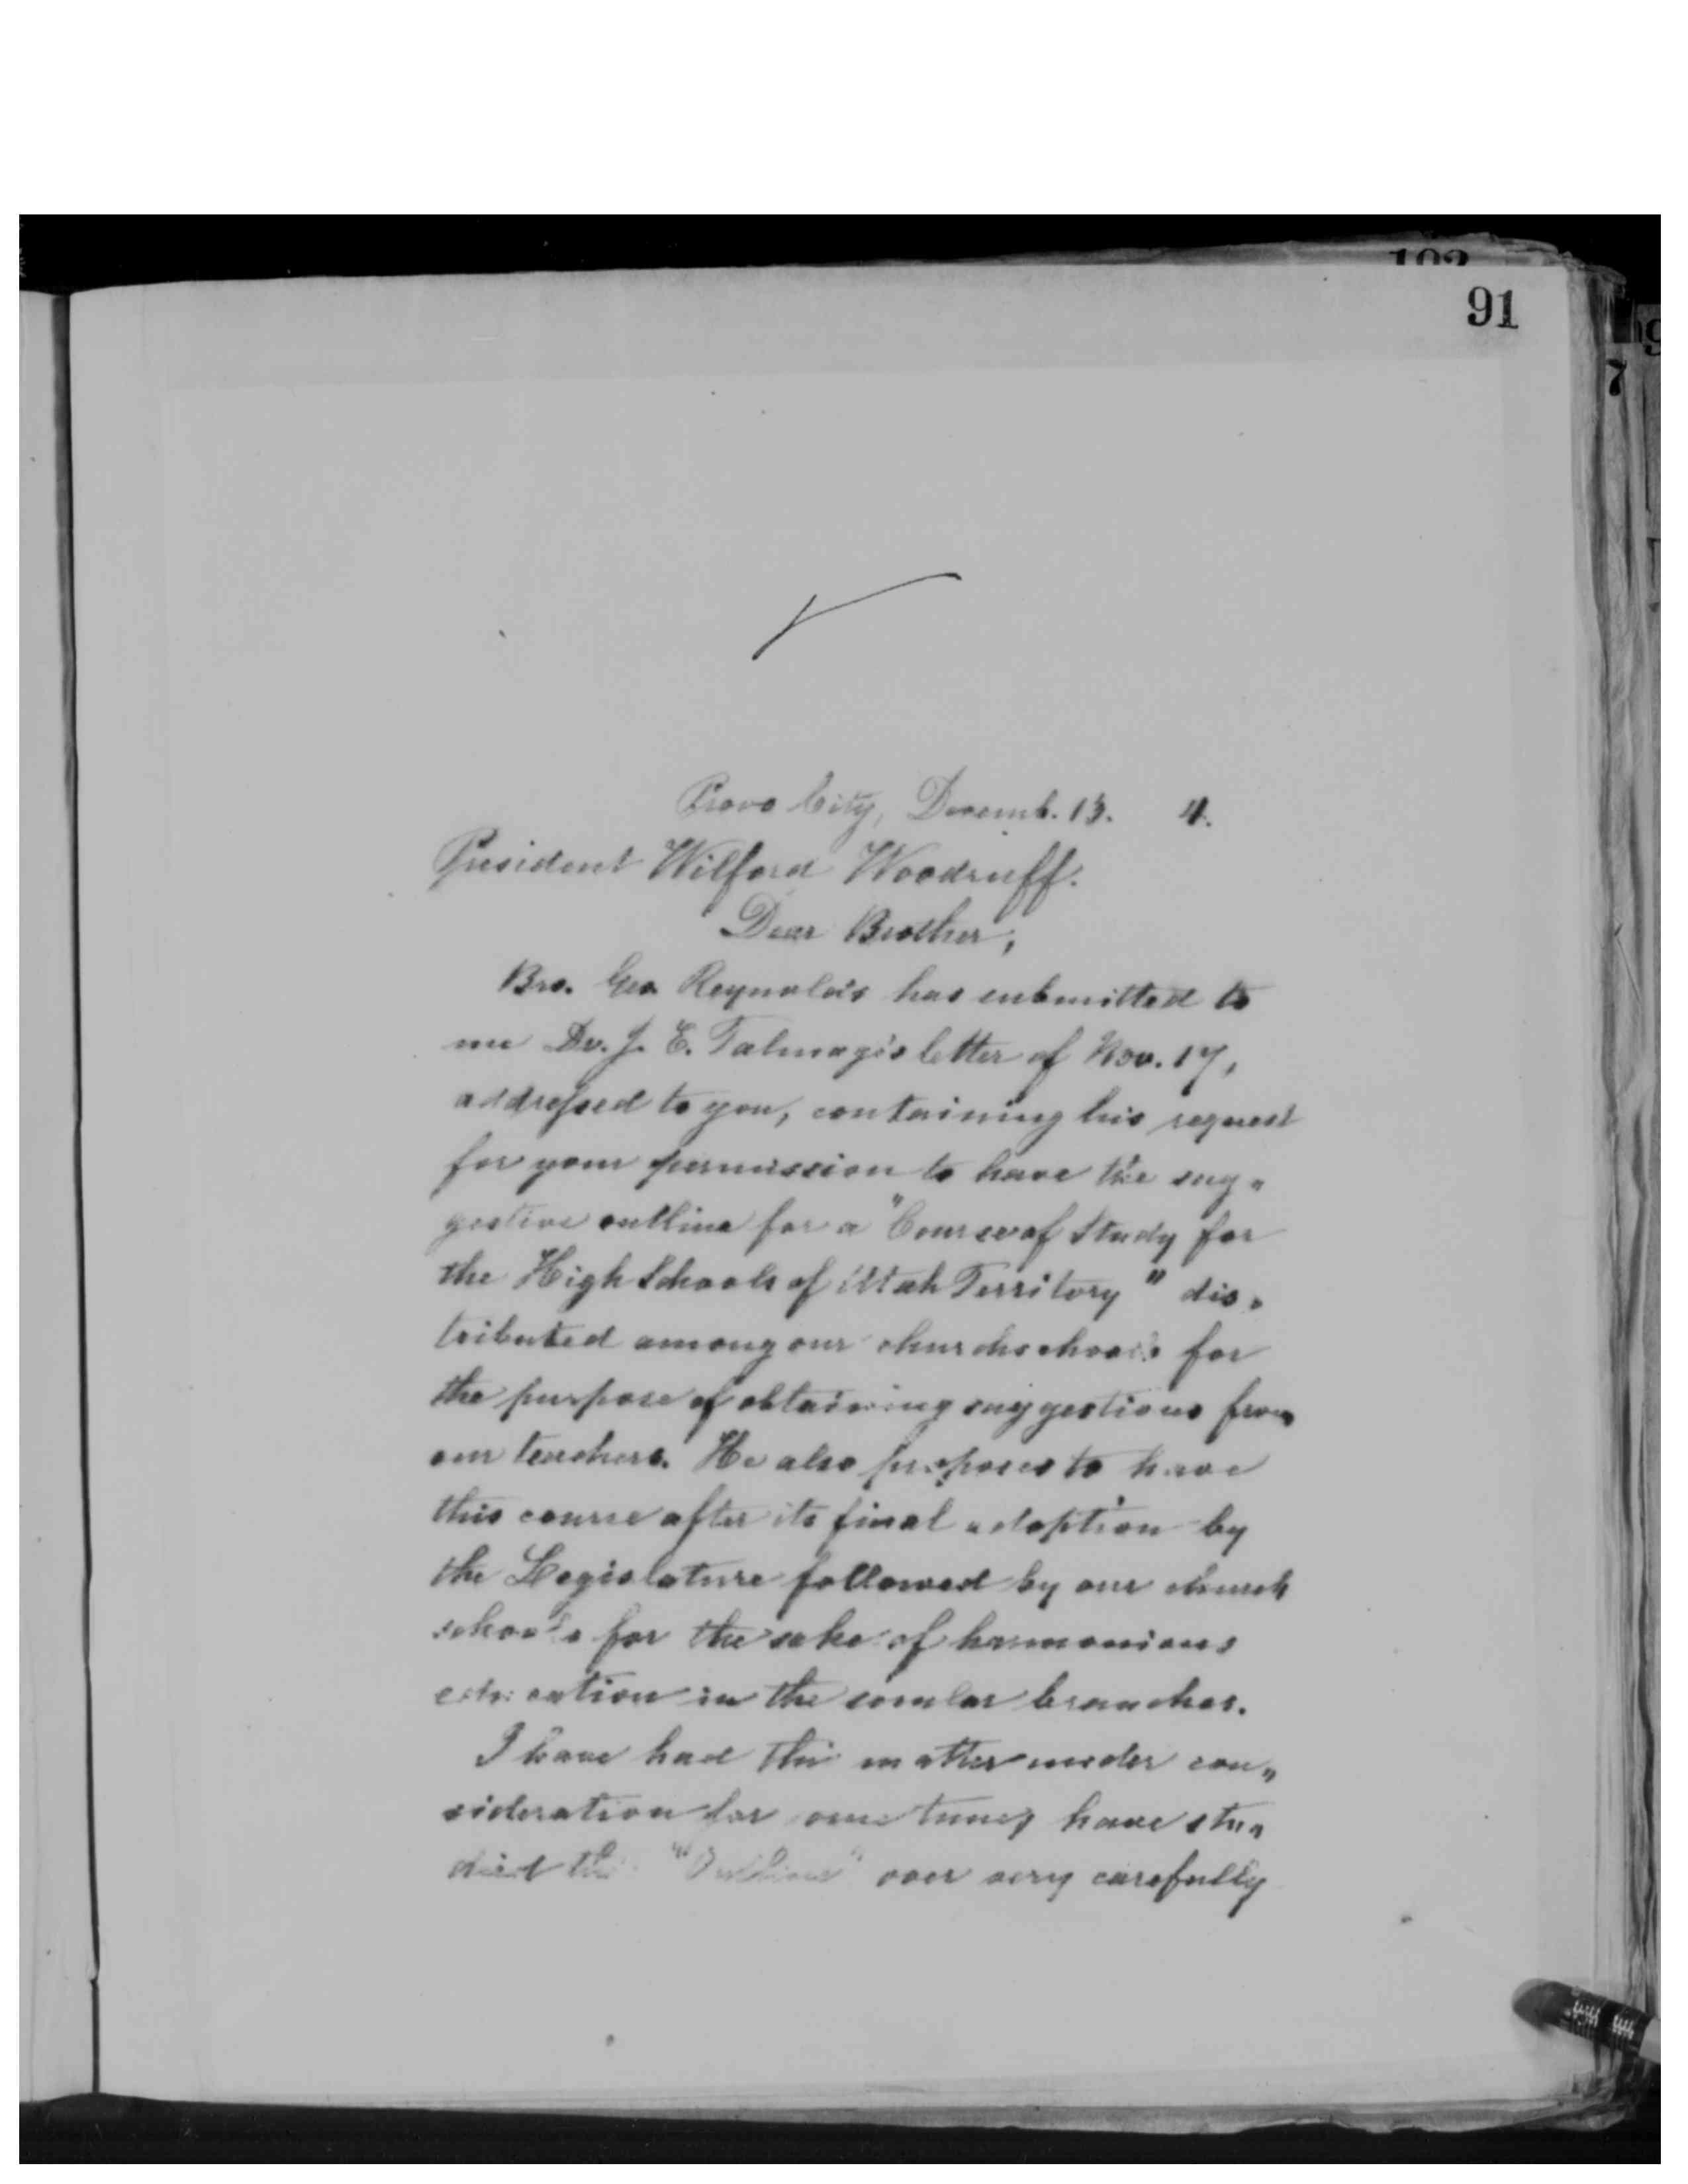 103
91
7
Provo City, Decemb. 13. 4.
President Wilford Woodruff.
Dear Brother,
Bro. Geo Reynolds has submitted to
me Dr. J. E. Talmage's letter of Nov. 17,
addressed to you, containing his request
for your permission to have the sug„
gestive outline for a "Course of Study for
the High Schools of Utah Territory" dis„
tributed among our churchschools for
the purpose of obtaining suggestions from
our teachers. He also proposes to have
this course after its final adoption by
the Legislature followed by our church
schools for the sake of harmonious
education in the secular branches.
I have had this matter under con„
sideration for some time, have stu„
died the "Outline" over very carefully